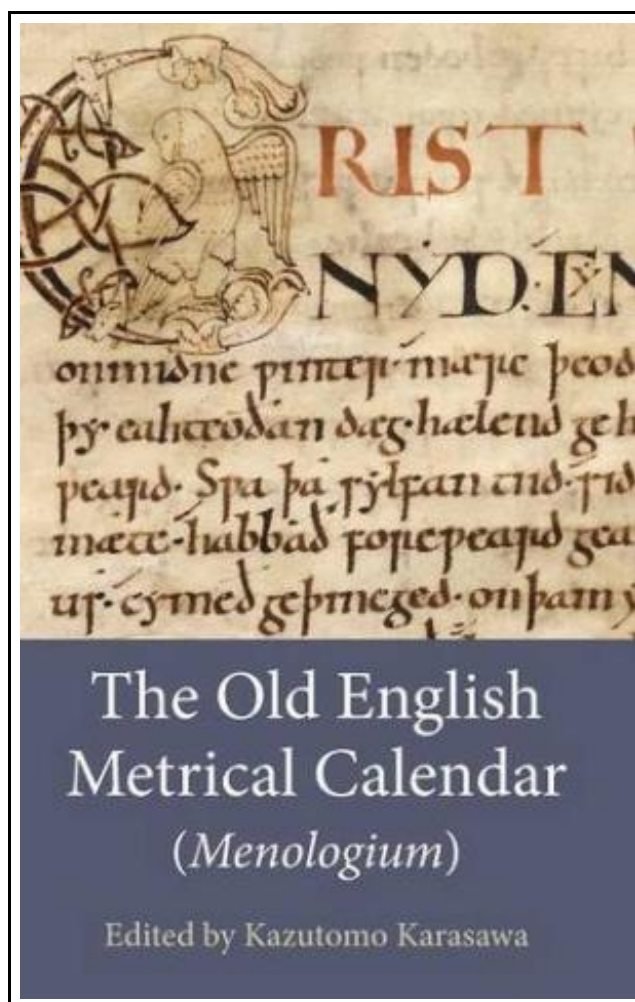 CRIST
NẎD·CẎN
onmidne ƿinter· mære þeod
þy· eahteoðan dæg· hælend geh
ƿeard· Sƿa þa sylfan tiid· sid
mæte· habbað foreƿeard gea
us· cymeð geþincged· onþam y
The Old English
Metrical Calendar
(Menologium)
Edited by Kazutomo Karasawa